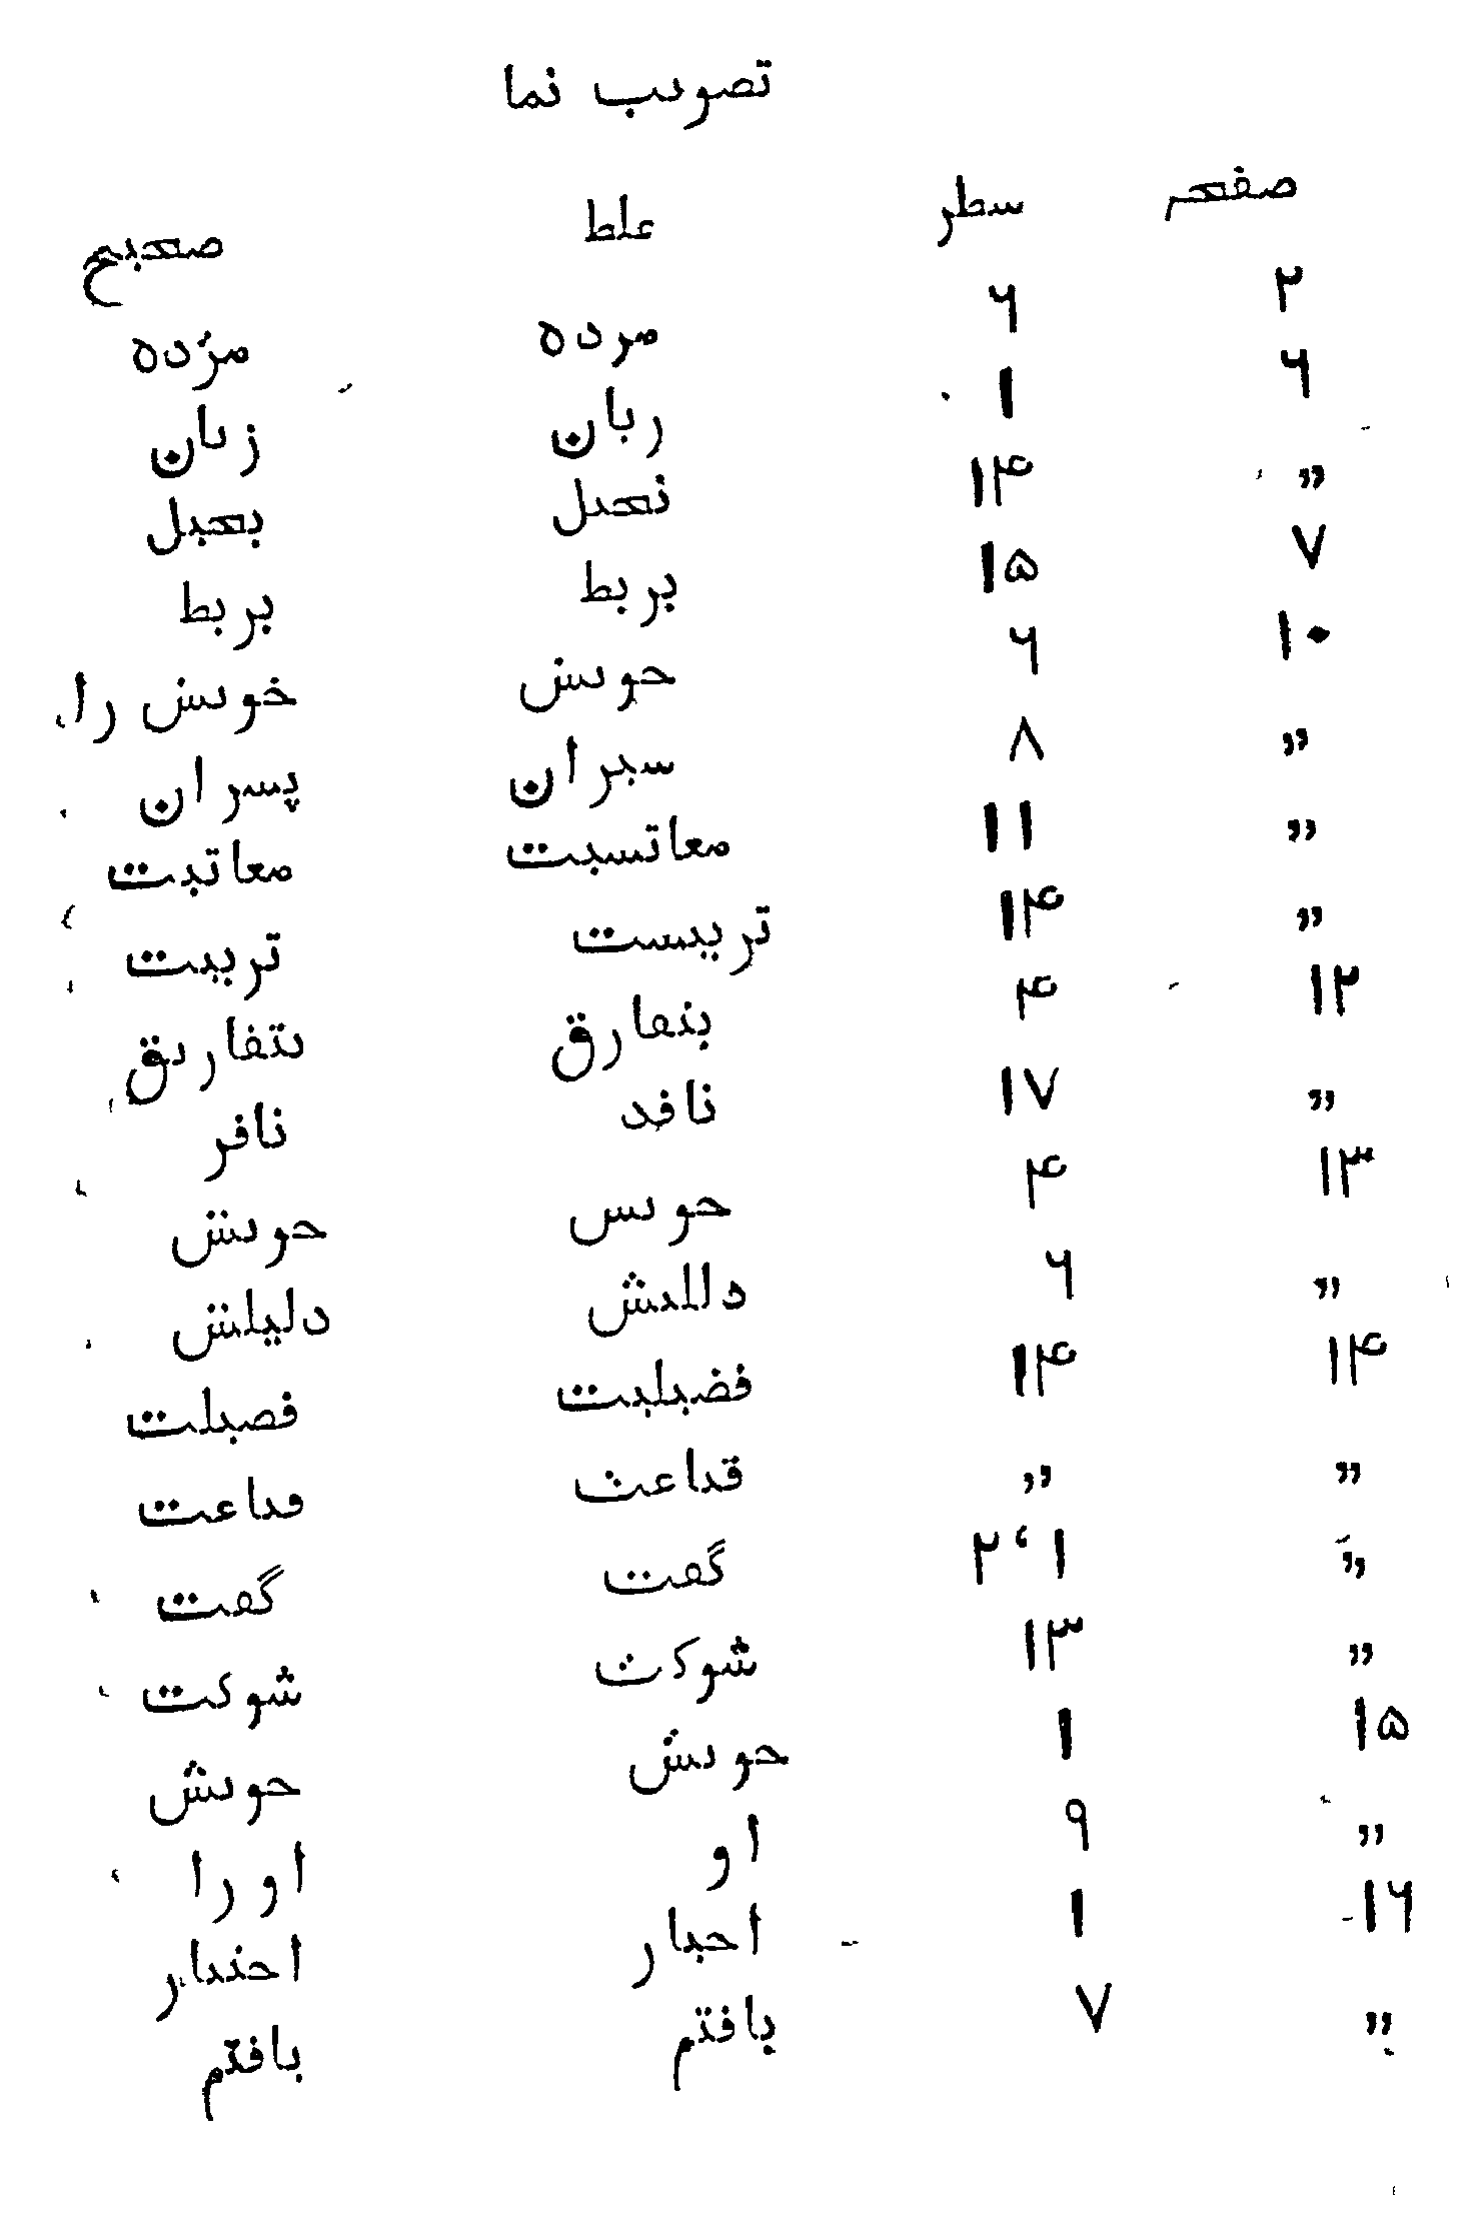 تصویب نما
صفحہ سطر غلط صحیح
۲ ۶ مرده مژده
۶ ۱ ربان زبان
,, ۱۴ نحیل بحیل
۷ ۱۵ بربط بربط
۱۰ ۶ خویش خویش را
,, ۸ سبران پسران
,, ۱۱ معاتسبت معاتبت
,, ۱۴ تریبست تربیت
۱۲ ۴ بنفارق بتفاریق
,, ۱۷ نافد نافر
۱۳ ۴ حویس خویش
,, ۶ داللش دلیلش
۱۴ ۱۴ فضیلیت فضیلت
,, ,, قناعث قناعت
,, ۱،۲ گفت گفت
,, ۱۳ شوکث شوکت
۱۵ ۱ حویش خویش
,, ۹ او او را
۱۶ ۱ احبار احتیار
,, ۷ یافتم یافتم